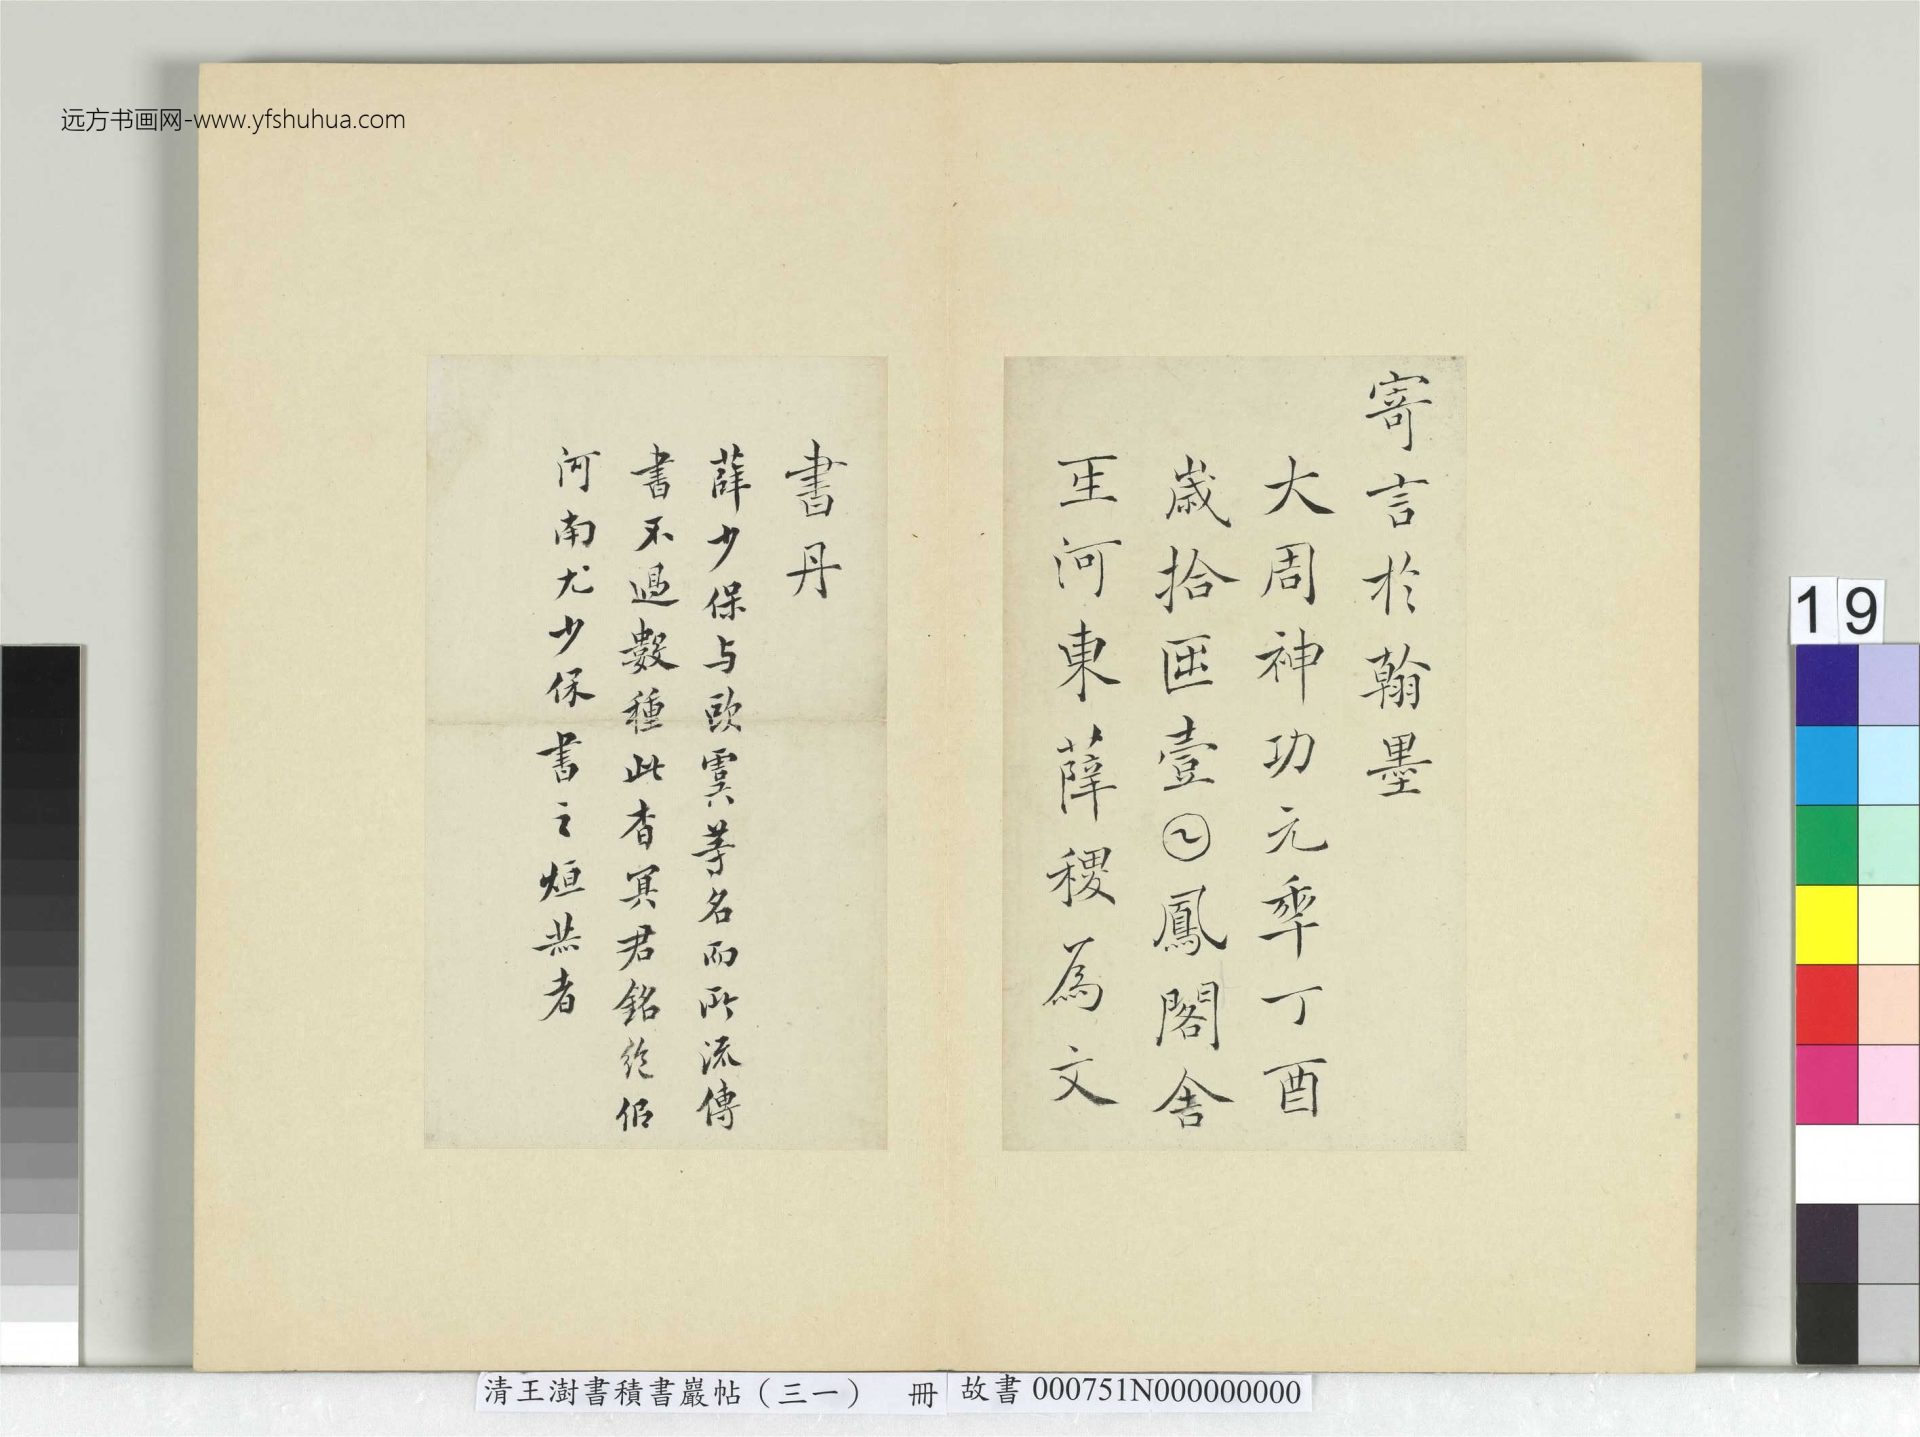 远方书画网-www.yfshuhua.com
寄言於翰墨
大周神功元𠡦丁酉
歲拾𠥱壹𡆠鳳閣舍
𤯔河東薛稷為文
書丹
薛少保与欧虞等名而所流傳
書不過數種此杳冥君銘絶佀
河南尤少保書之烜赫者
19
清王澍書積書巖帖（三一） 冊
故書 000751N000000000